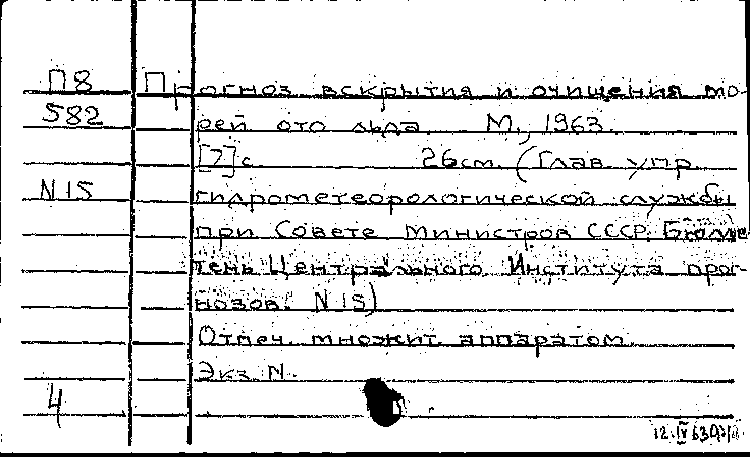 П8 Прогноз вскрытия и очищения мо-
582 рей ото льда. М., 1963.
[7] с. 26см. (Глав. упр.
N 15 гидрометеорологической службы
при Совете Министров СССР. Бюлле-
тень Центрального Института прог-
нозов. N 15)
Отпеч. множит. аппаратом.
Экз. N
4
12.IV 63